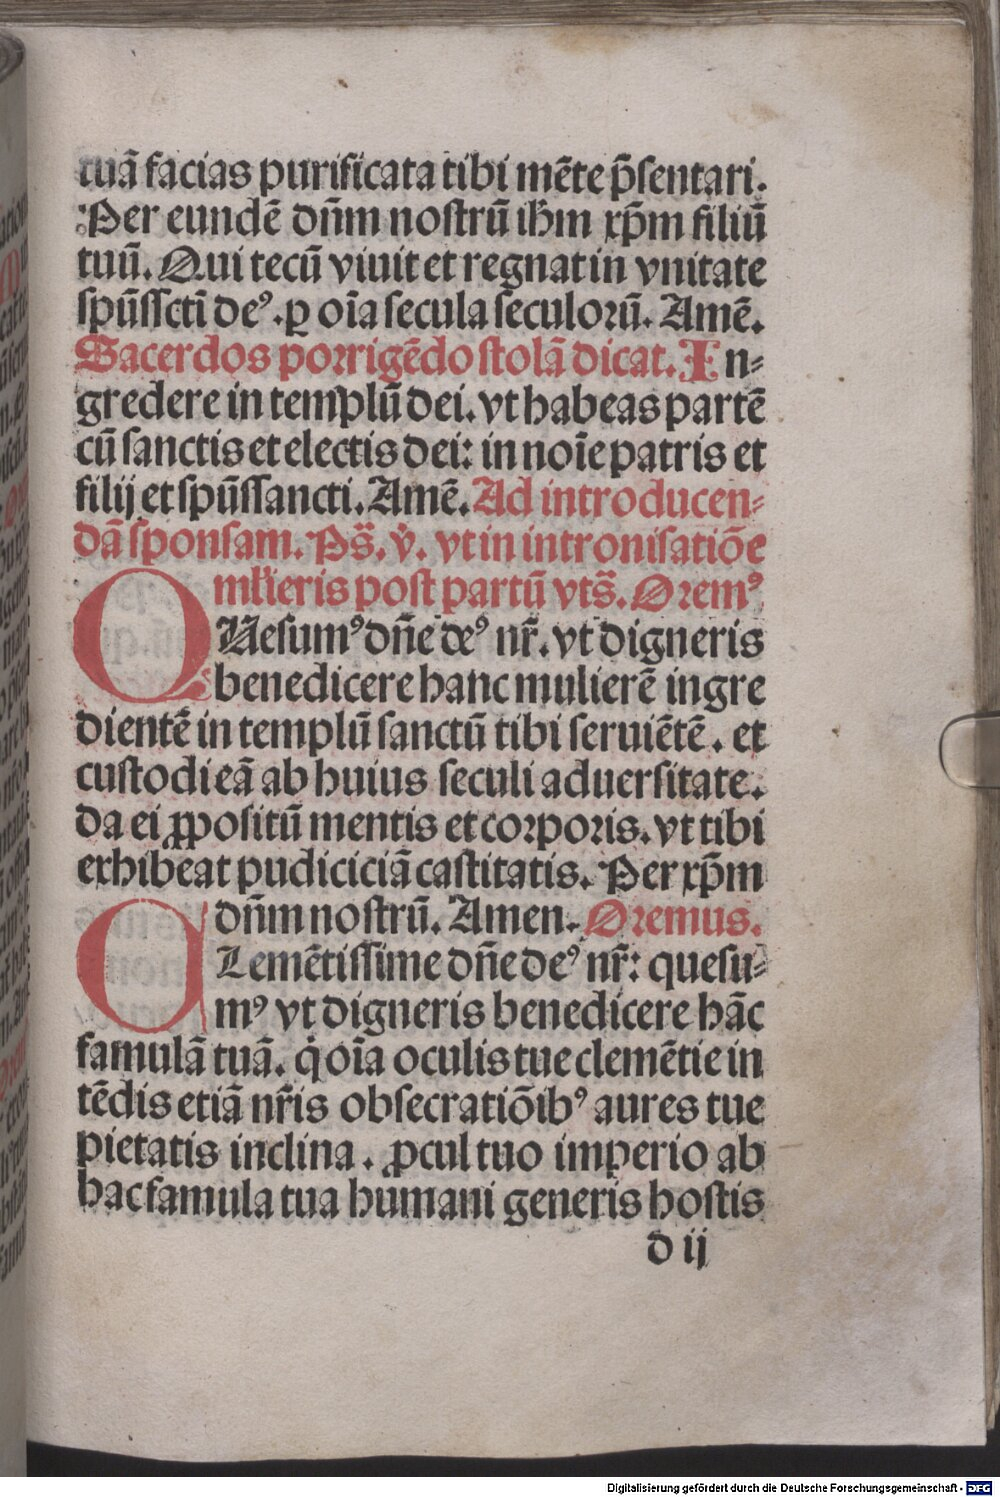 tuã facias purificata tibi mẽte p̃sentari.
Per eundẽ dñm nostrũ ihm̃ xp̃m filiũ
tuũ. Qui tecũ viuit et regnat in vnitate
spũsscti̅ deꝰ. ꝑ oi̅a secula seculoꝛũ. Amẽ.
Sacerdos porrigẽdo stolã dicat. In⸗
gredere in templũ dei. vt habeas partẽ
cũ sanctis et electis dei: in noi̅e patris et
filij et spũssancti. Amẽ. Ad introducen⸗
dã sponsam. Ps̃. v̊. vt in intronisatiõe
ml̃ieris post partũ vts̃. Oꝛemꝰ
QUesumꝰ dñe deꝰ nr̃. vt digneris
benedicere hanc mulierẽ ingre
dientẽ in templũ sanctũ tibi seruiẽtẽ. et
custodi eã ab huius seculi aduersitate.
da ei ꝓpositũ mentis et coꝛpoꝛis. vt tibi
exhibeat pudiciciã castitatis. Per xp̃m
dñm nostrũ. Amen. Oꝛemus.
CLemẽtissime dñe deꝰ nr̃: quesu⸗
mꝰ vt digneris benedicere hãc
famulã tuã. q̇ oi̅a oculis tue clemẽtie in
tẽdis etiã nr̃is obsecratiõibꝰ aures tue
pietatis inclina. ꝓcul tuo imperio ab
hac famula tua humani generis hostis
d ij
Digitalisierung gefördert durch die Deutsche Forschungsgemeinschaft - DFG